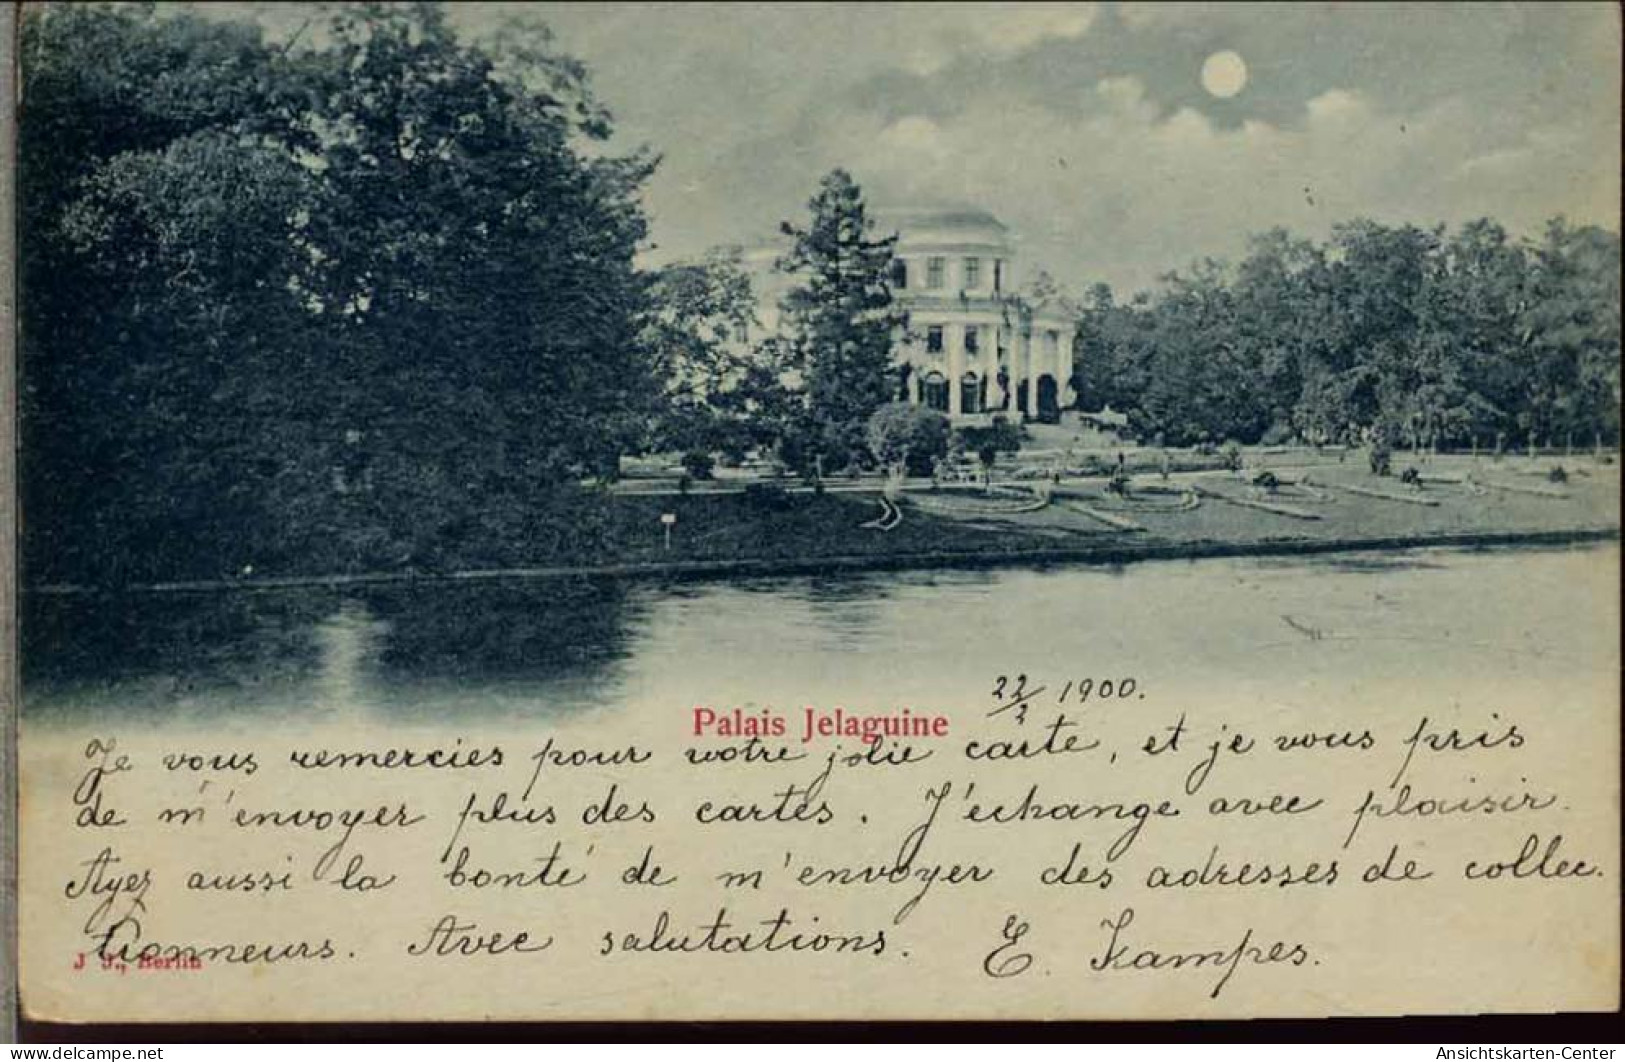 22/2 1900.
Palais Jelaguine
Je vous remercies pour votre jolie carte, et je vous pris
de m'envoyer plus des cartes. J'echange avec plaisir.
Ayez aussi la bonté de m'envoyer des adresses de collec.
tionneurs. Avec salutations. E. Kampes.
J. J., Berlin
www.delcampe.net
Ansichtskarten-Center